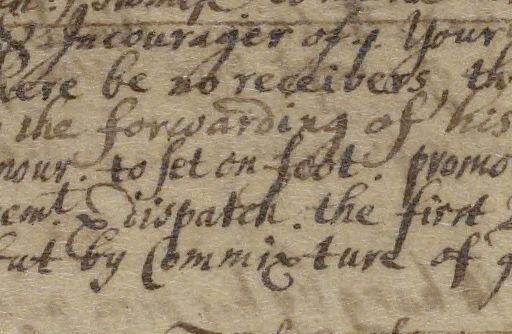 & Incourager of y. Your
were be no receivers, th
the forwarding of his
mour. to set on foot. promo
cemt. & dispatch. the first
but by Commixture of